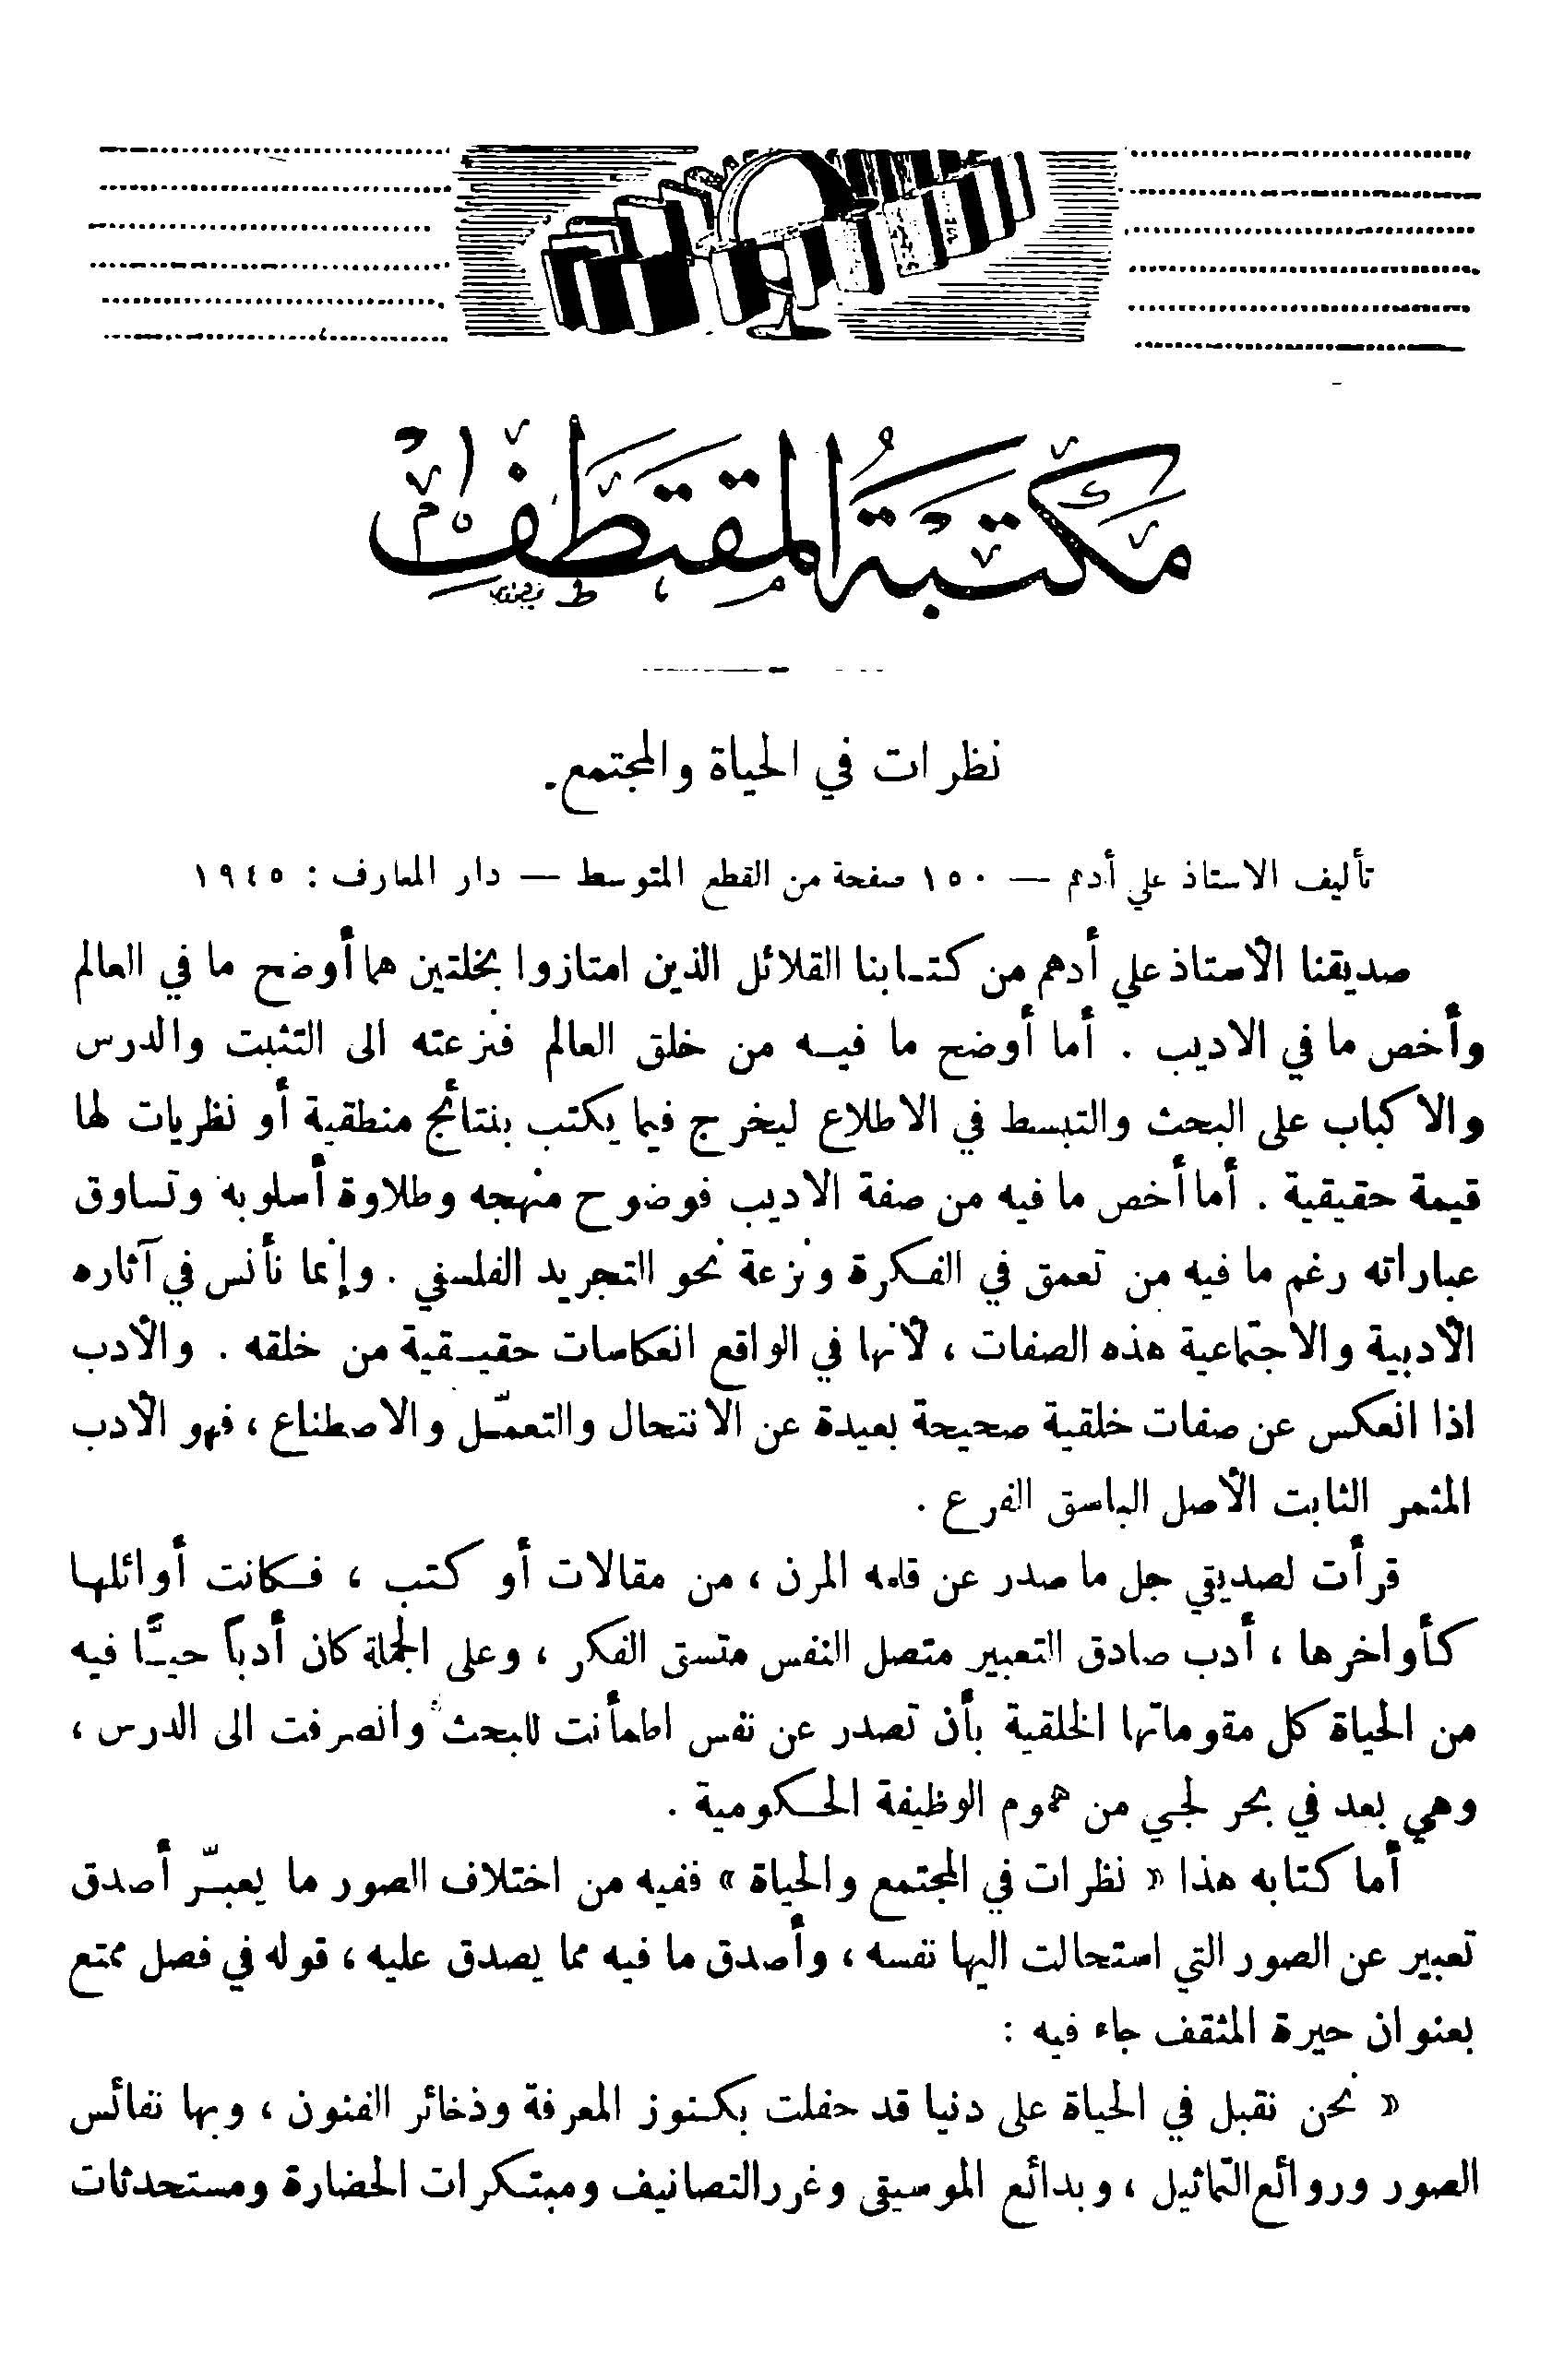 مكتبة المقتطف
نظرات في الحياة والمجتمع.
تأليف الاستاذ علي أدهم — ١٥٠ صفحة من القطع المتوسط — دار المعارف : ١٩٤٥
صديقنا الأستاذ علي أدهم من كتـابنا القلائل الذين امتازوا بخلتين هما أوضح ما في العالم
وأخص ما في الاديب . أما أوضح ما فيـه من خلق العالم فنزعته الى التثبت والدرس
والاكباب على البحث والتبسط في الاطلاع ليخرج فيما يكتب بنتائج منطقية أو نظريات لها
قيمة حقيقية . أما أخص ما فيه من صفة الاديب فوضوح منهجه وطلاوة أسلوبه وتساوق
عباراته رغم ما فيه من تعمق في الفكرة ونزعة نحو التجريد الفلسفي . وإنما نأنس في آثاره
الأدبية والاجتماعية هذه الصفات ، لأنها في الواقع انعكاسات حقيـقية من خلقه . والأدب
اذا انعكس عن صفات خلقية صحيحة بعيدة عن الانتحال والتعمّـل والاصطناع ، فهو الأدب
المثمر الثابت الأصل الباسق الفرع .
قرأت لصديقي جل ما صدر عن قلمه المرن ، من مقالات أو كتب ، فـكانت أوائلها
كأواخرها ، أدب صادق التعبير متصل النفس متسق الفكر ، وعلى الجملة كان أدباً حيـًّا فيه
من الحياة كل مقوماتها الخلقية بأن تصدر عن نفس اطمأنت للبحث وانصرفت الى الدرس ،
وهي بعد في بحر لجـي من هموم الوظيفة الحـكومية .
أما كتابه هذا « نظرات في المجتمع والحياة » ففيه من اختلاف الصور ما يعبـّر أصدق
تعبير عن الصور التي استحالت اليها نفسه ، وأصدق ما فيه مما يصدق عليه ، قوله في فصل ممتع
بعنوان حيرة المثقف جاء فيه :
« نحن نقبل في الحياة على دنيا قد حفلت بكـنوز المعرفة وذخائر الفنون ، وبها نفائس
الصور وروائع التماثيل ، وبدائع الموسيقى وغرر التصانيف ومبتـكرات الحضارة ومستحدثات